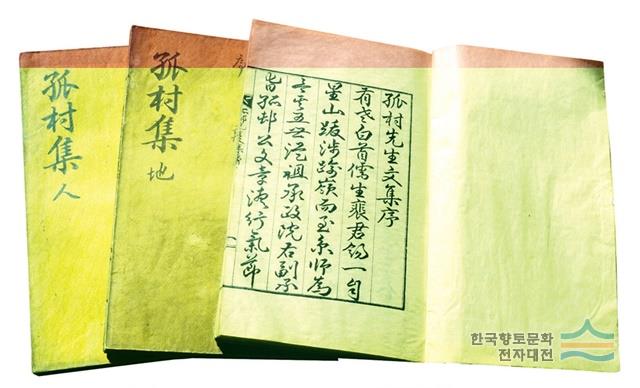 孤村先生文集序
有老白首儒生裵君錫一自
星山跋涉踰嶺而至京師為
五世從祖承政院右副承
旨孤邨公文章行氣節
序
孤村集 地
孤村集 人
한국향토문화
전자대전